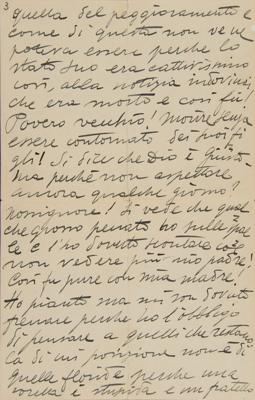 3
quella del peggioramento e
come di questa non ve ne
poteva essere perchè lo
stato suo era cattivissimo
così, alla notizia indovinai
che era morto e così fu!
Povero vecchio! morire senza
essere contornato dei suoi fi
gli! Si dice che Dio è giusto
ma perchè non aspettare
ancora qualche giorno?
nonsignore! Si vede che qual
che grosso peccato ho sulle spal
le e l'ho dovuto scontare col
non vedere più mio padre!
Così fu pure con mia madre.
Ho pianto ma mi son dovuto
frenare perchè ho l'obbligo
di pensare a quelli che restano,
la di cui posizione non è di
quelle floride perchè una
sorella è stupida e un fratello